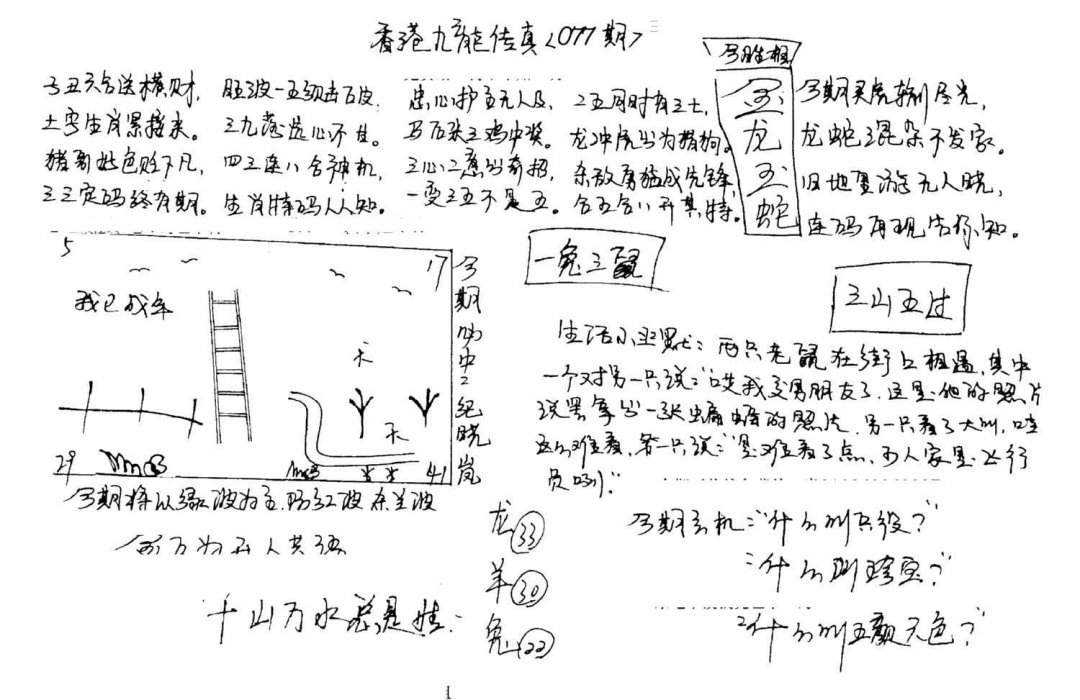 香港九龙传真<077期>
今期胜相
子丑六合送横财,
土字生肖累接来。
猪哥好色贬下凡,
三三定码终有期。
三九落选心不甘。
四三连八合神机,
生肖特码人人知。
忠心护主无人及,
马后来三鸡中奖。
三心二意出奇招,
一变三五不是五。
二五同时有三士,
龙冲虎出为猪狗。
东敌勇猛成先锋,
合五合八开其特。
金
龙
玉
蛇
今期买虎输尽光,
龙蛇混杂不发家。
旧地重游无人晓,
连码再现告你知。
5
17
我已成年
天
天
29
41
今期四中二纪晓岚
一兔三鼠
三山五过
生活小幽默:两只老鼠在街上相遇,其中
一个对另一只说:"哎我交男朋友了,这是他的照片
说罢拿出一张蝙蝠的照片,另一只看了大叫,哇
这么难看,第一只说:"是难看了点,可人家是飞行
员咧!"
今期将以绿波为主,防红波杂兰波
龙 33
羊 30
兔 22
千山万水总是情
今期玄机:"什么叫只级?"
"什么叫
"什么叫五颜六色?"
1